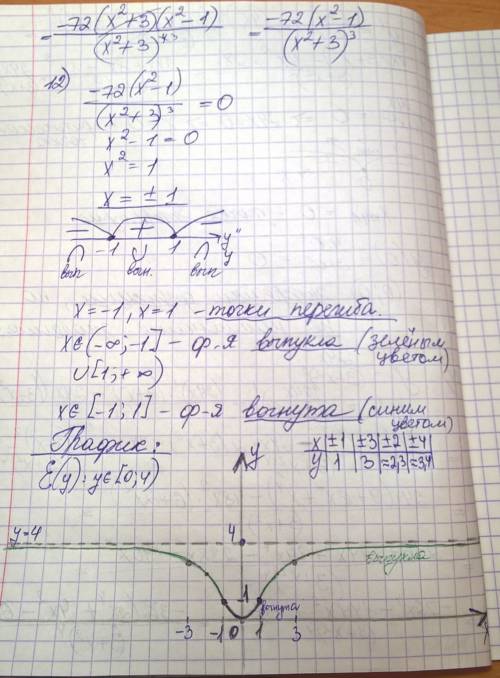 = -72(x²+3)(x²-1) / (x²+3)⁴·³ = -72(x²-1) / (x²+3)³
12) -72(x²-1) / (x²+3)³ = 0
x²-1=0
x²=1
x=±1
− + − y''
-1 1 y
вып вогн. вып
x=-1, x=1 - точки перегиба.
x∈(-∞;-1] - ф-я выпукла (зелёным
∪[1;+∞) цветом)
x∈[-1;1] - ф-я вогнута (синим
цветом)
График:
x | ±1 | ±3 | ±2 | ±4
y | 1 | 3 | ≈2,3 | ≈3,4
E(y): y∈[0;4)
y
y=4 4
выпукла
1 вогнута
-3 -1 0 1 3